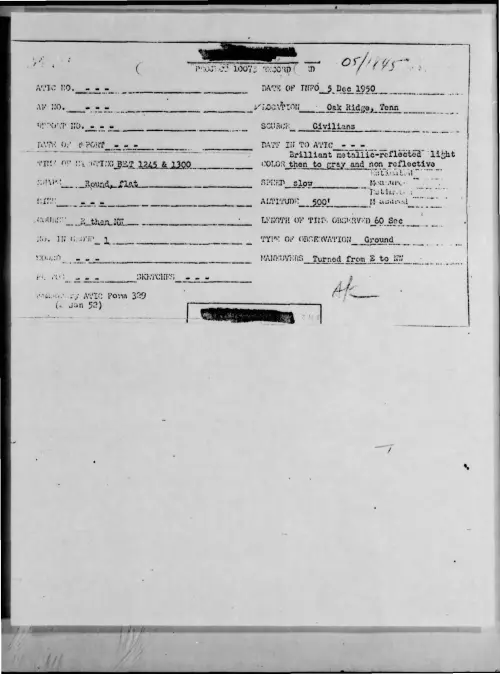 05/1945
PROJECT 10073 RECORD
ATIC NO. - - - DATE OF INFO 5 Dec 1950
AF NO. - - - LOCATION Oak Ridge, Tenn
REPORT NO. - - - SOURCE Civilians
DATE OF REPORT - - - DATE IN TO ATIC - - -
Brilliant metallic-reflected light
TIME OF SIGHTING BET 1245 & 1300 COLOR then to gray and non reflective
Estimated
SHAPE Round, flat SPEED Slow Measured
Estimated
SIZE - - - ALTITUDE 500' Measured
COURSE E then NW LENGTH OF TIME OBSERVED 60 Sec
NO. IN GROUP 1 TYPE OF OBSERVATION Ground
SOUND - - - MANEUVERS Turned from E to NW
PHOTOS - - - SKETCHES - - -
Temporary ATIC Form 329
(2 Jan 52)